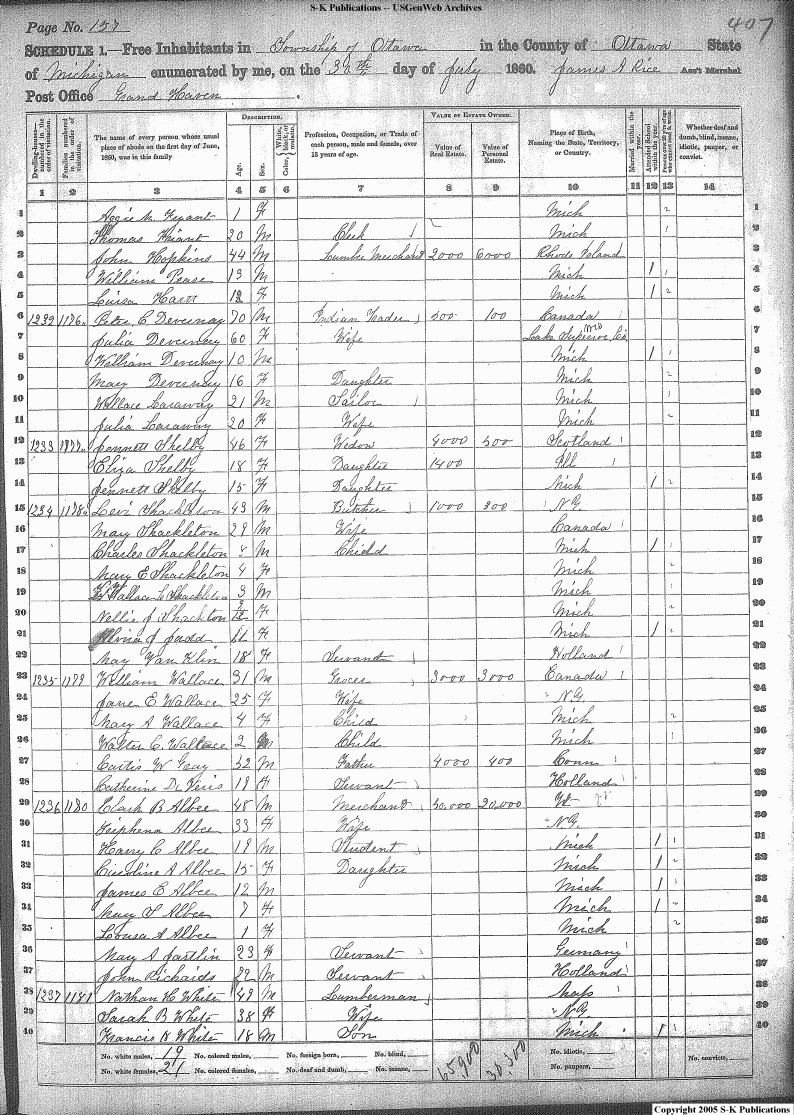 S-K Publications -- USGenWeb Archives
Page No. 157
407
SCHEDULE 1.—Free Inhabitants in Township of Ottawa in the County of Ottawa State
of Michigan enumerated by me, on the 30th day of July 1860. James A Rice Ass't Marshal
Post Office Grand Haven.
Dwelling-houses—numbered in the order of visitation.
Families numbered in the order of visitation.
The name of every person whose usual place of abode on the first day of June, 1860, was in this family
DESCRIPTION.
Age.
Sex.
Color, White, black, or mulatto.
Profession, Occupation, or Trade of each person, male and female, over 15 years of age.
VALUE OF ESTATE OWNED.
Value of Real Estate.
Value of Personal Estate.
Place of Birth, Naming the State, Territory, or Country.
Married within the year.
Attended School within the year.
Persons over 20 y'rs of age who cannot read & write.
Whether deaf and dumb, blind, insane, idiotic, pauper, or convict.
1 2 3 4 5 6 7 8 9 10 11 12 13 14
1 1 F Mich 1
2 Thomas 20 M Clerk Mich 2
3 John Hopkins 44 M Lumber Merchant 2000 6000 Rhode Island 3
4 William Pease 13 M Mich 1 4
5 Luisa Hart 12 F Mich 1 5
6 1232 1176 Peter C Devernay 70 M Indian Trader 500 100 Canada 6
7 Julia Devernay 60 F Wife Lake Superior 7
8 William Devernay 10 M Mich 1 8
9 Mary Devernay 16 F Daughter Mich 9
10 Wallace Caraway 21 M Sailor Mich 10
11 Julia Caraway 20 F Wife Mich 11
12 1233 1177 Jennett Shelby 46 F Widow 4000 500 Scotland 12
13 Eliza Shelby 18 F Daughter 1400 Ill 13
14 Jennett Shelby 15 F Daughter Mich 1 14
15 1234 1178 Levi Shackleton 43 M Butcher 1000 300 N.Y. 15
16 Mary Shackleton 29 F Wife Canada 16
17 Charles Shackleton M Child Mich 1 17
18 Mary E Shackleton 4 F Mich 18
19 Wallace L Shackleton 3 M Mich 19
20 Nellie J Shackton F Mich 20
21 J Judd 11 F Mich 1 21
22 May Van Klin 18 F Servant Holland 22
23 1235 1179 William Wallace 31 M Grocer 3000 3000 Canada 23
24 Jane E Wallace 25 F Wife N.Y. 24
25 Mary A Wallace 4 F Child Mich 25
26 Walter C. Wallace 2 M Child Mich 26
27 Curtis W Gray 52 M Father 4000 400 Conn 27
28 Catherine D. 19 F Servant Holland 28
29 1236 1180 Clark B Albee 48 M Merchant 50,000 20,000 Vt 29
30 Albee 33 F Wife N.Y. 30
31 Harry C Albee 19 M Student Mich 1 31
32 Caroline A Albee 15 F Daughter Mich 1 32
33 James E Albee 12 M Mich 1 33
34 Mary S Albee 7 F Mich 1 34
35 Louisa A Albee 1 F Mich 35
36 Mary A Jastlin 23 F Servant Germany 36
37 John Richards 22 M Servant Holland 37
38 1237 1181 Nathan H White 49 M Lumberman Mass 38
39 Sarah B White 38 F Wife N.Y. 39
40 Francis H White 18 M Son Mich 1 40
No. white males, 19 No. colored males, No. foreign born, No. blind, No. idiotic, No. convicts,
No. white females, 21 No. colored females, No. deaf and dumb, No. insane, 65,900 30,300 No. paupers,
Copyright 2005 S-K Publications